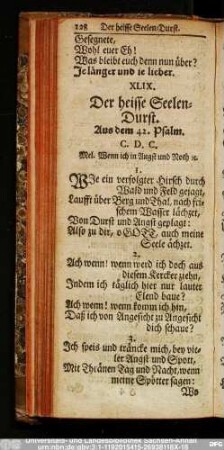 208 Der heisse Seelen-Durst.
Gesegnete,
Wohl euer Eh!
Was bleibt euch denn nun über?
Je länger und ie lieber.
XLIX.
Der heisse Seelen-
Durst.
Aus dem 42. Psalm.
C. D. C.
Mel. Wenn ich in Angst und Noth ꝛc.
1.
WJe ein verfolgter Hirsch durch
Wald und Feld gejagt,
Laufft über Berg und Thal, nach fri-
schem Wasser lächzet,
Von Durst und Angst geplagt:
Also zu dir, o GOTT, auch meine
Seele ächzet.
2.
Ach wenn! wenn werd ich doch aus
diesem Kercker ziehn,
Indem ich täglich hier nur lauter
Elend baue?
Ach wenn! wenn komm ich hin,
Daß ich von Angesicht zu Angesicht
dich schaue?
3.
Ich speis und träncke mich, bey vie-
ler Angst und Spott,
Mit Thränen Tag und Nacht, wenn
meine Spötter sagen:
Wo
Universitäts- und Landesbibliothek Sachsen-Anhalt
urn:nbn:de:gbv:3:1-1192015415-269388116X-18
DFG